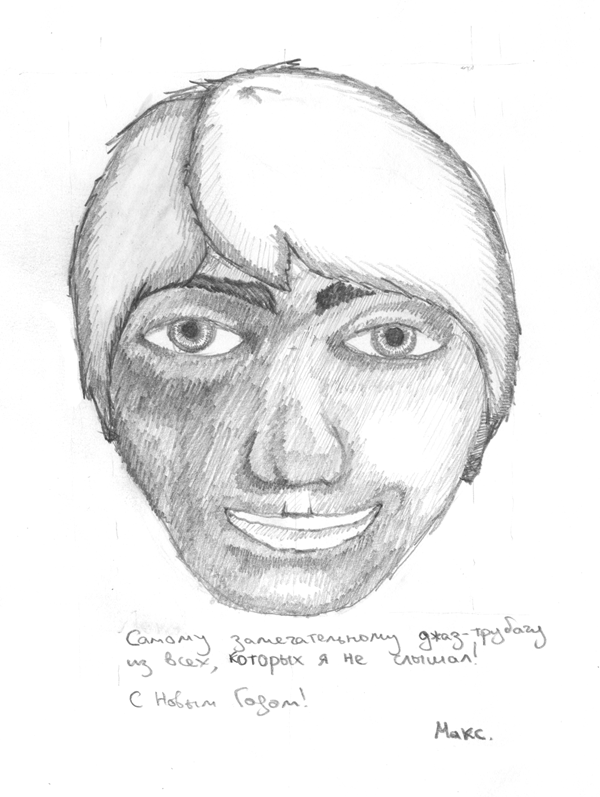 Самому замечательному джаз-трубачу
из всех, которых я не слышал!
С Новым Годом!
Макс.